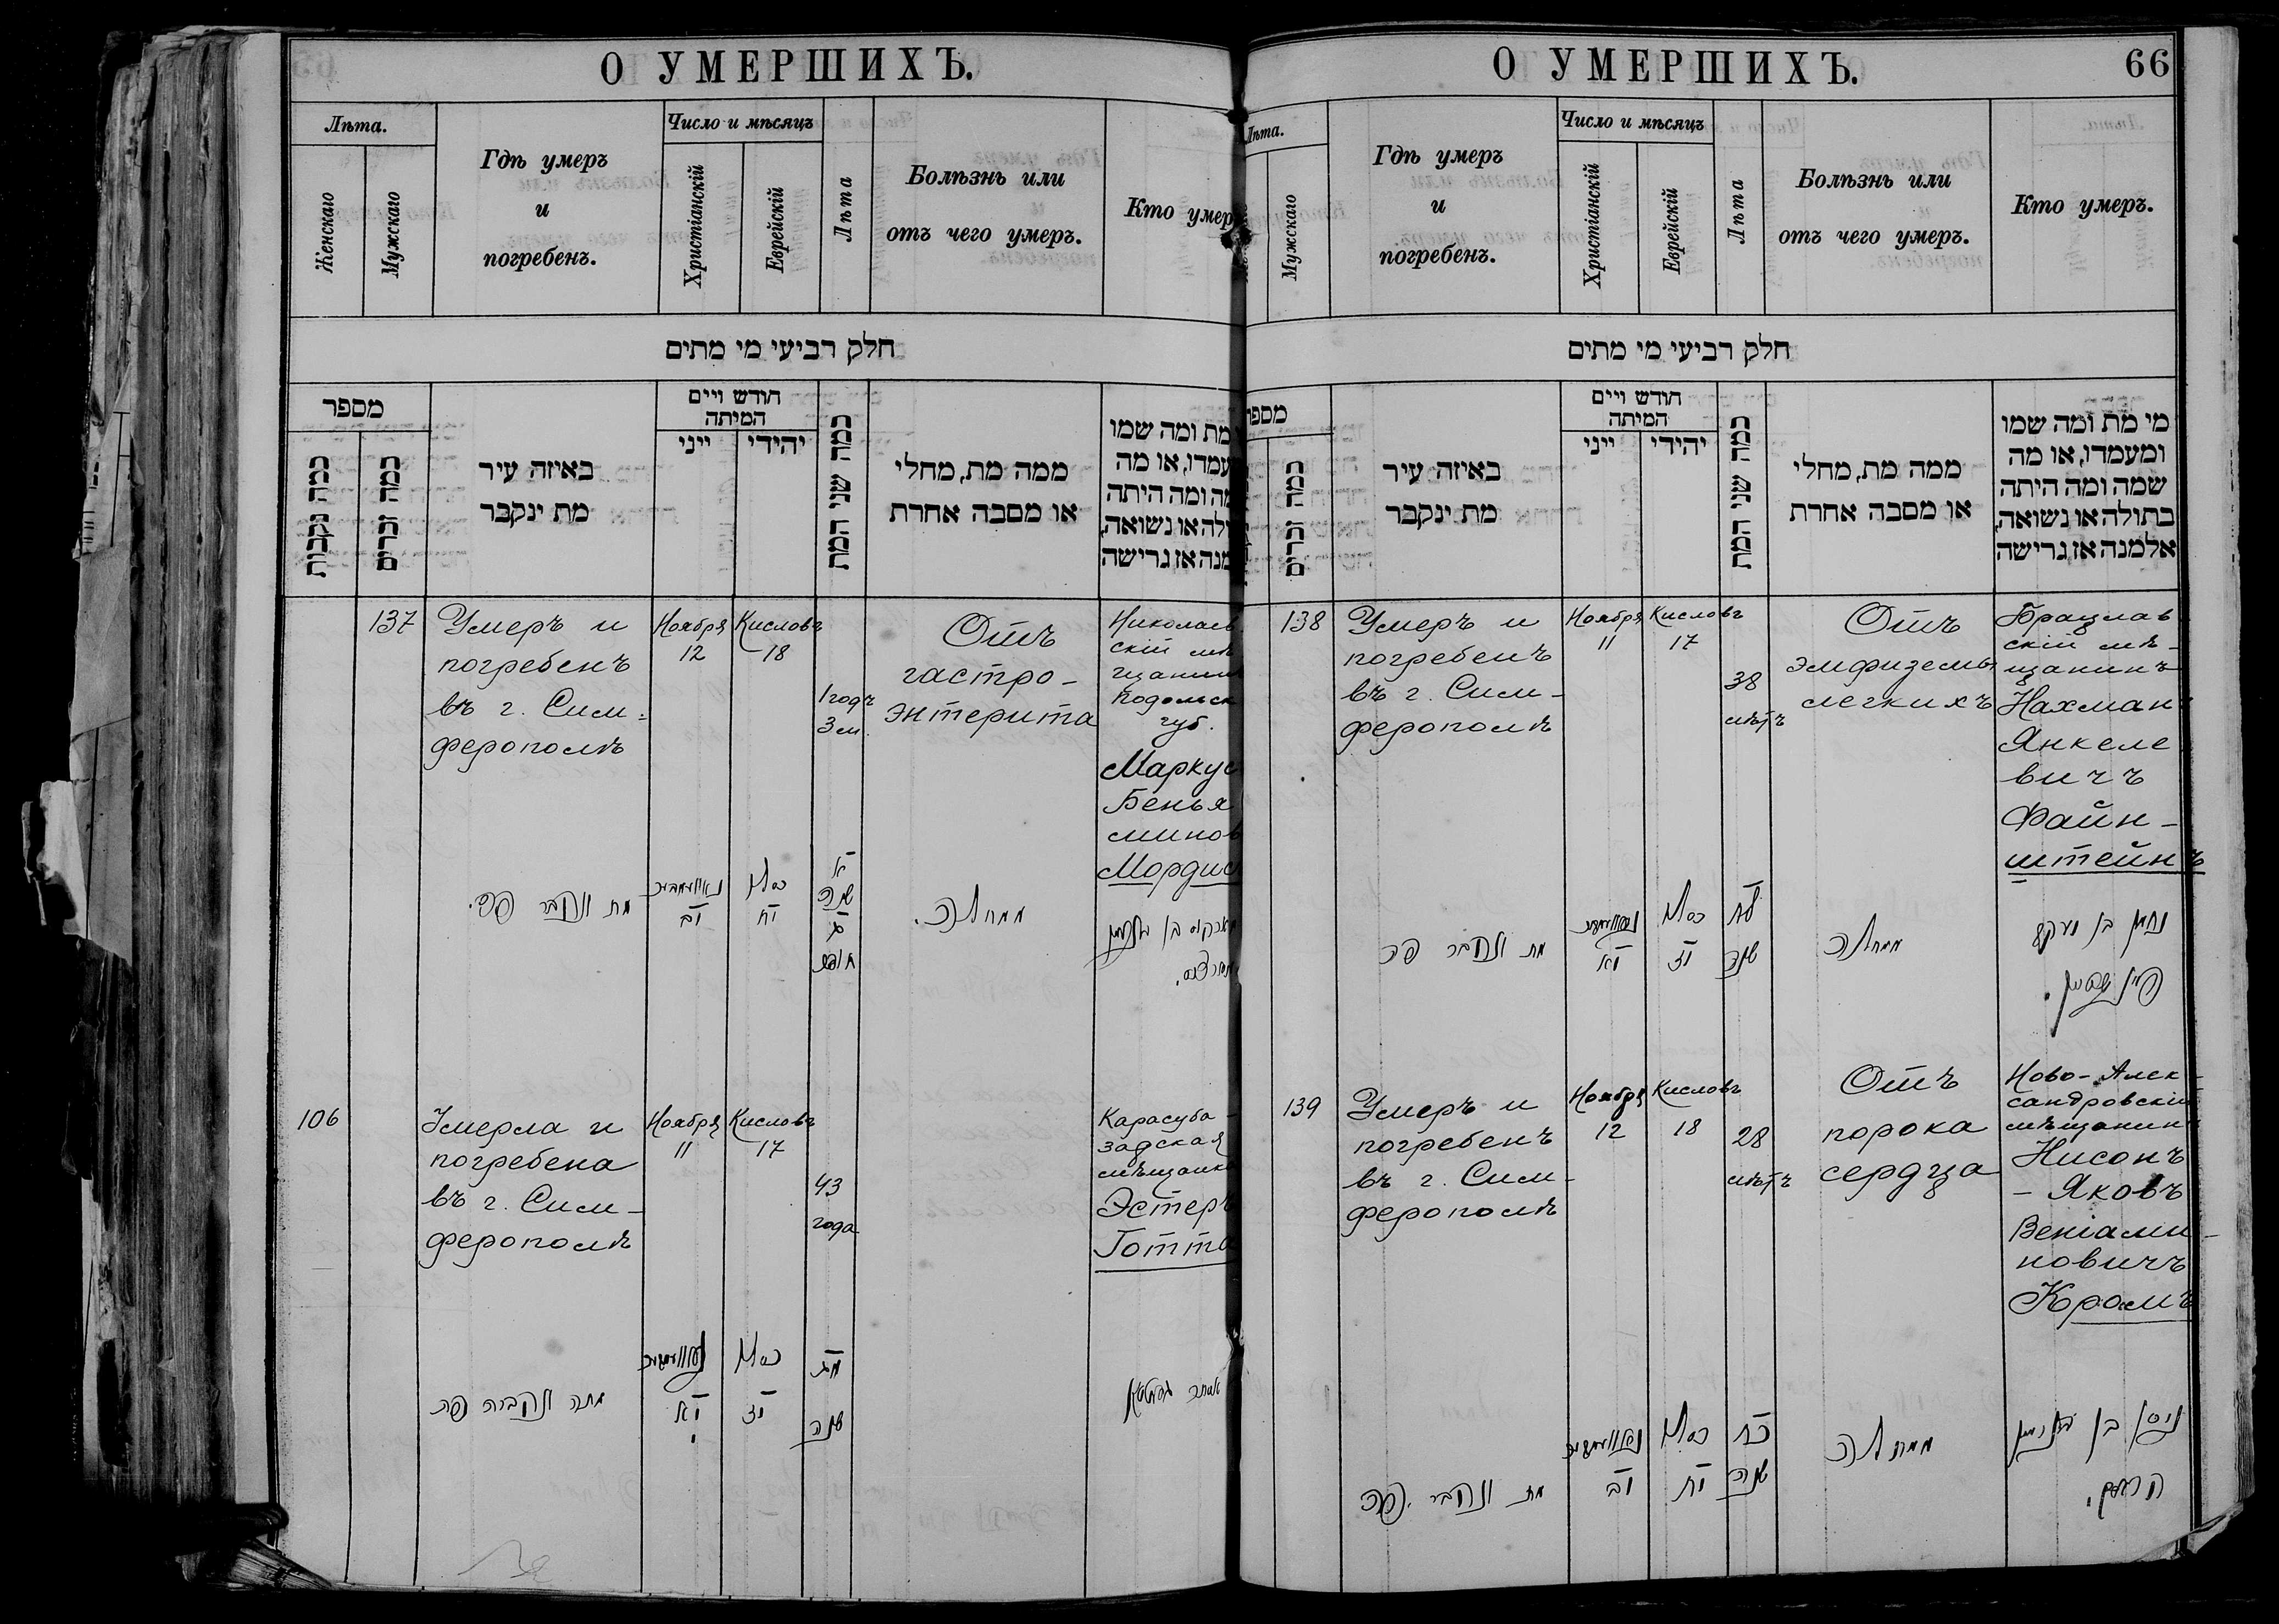 О УМЕРШИХЪ.
Лѣта.
Женскаго
Мужскаго
Гдѣ умеръ
и
погребенъ.
Число и мѣсяцъ
Христіанскій
Еврейскій
Лѣта
Болѣзнь или
отъ чего умеръ.
Кто умер
חלק רביעי מי מתים
מספר
כמה נקבות
כמה זכרים
באיזה עיר
מת ינקבר
חודש ויים
המיתה
ייני
יהידי
כמה שני המת
ממה מת, מחלי
או מסבה אחרת
מת ומה שמו
עמדו, או מה
מה ומה היתה
ולה או נשואה,
מנה אז גרישה
137
Умеръ и
погребенъ
въ г. Сим-
ферополѣ
Ноября
12
Кисловъ
18
1 годъ
3 м.
Отъ
гастро-
энтерита
Николаев
скій мѣ
щанин
Подольск
губ.
Маркус
Бенья
минов
Мордис
מת ונקבר פה.
יב
כסלו
יח
א
שנה
ג
ממחלה.
106
Умерла и
погребена
въ г. Сим-
ферополѣ
Ноября
11
Кисловъ
17
43
года
Карасуба-
задская
мѣщанка
Эстеръ
Готта
מתה ונקברה פה
יא
כסלו
יז
מג
שנה
אסתר
О УМЕРШИХЪ.
66
Лѣта.
Мужскаго
Гдѣ умеръ
и
погребенъ.
Число и мѣсяцъ
Христіанскій
Еврейскій
Лѣта
Болѣзнь или
отъ чего умеръ.
Кто умеръ.
חלק רביעי מי מתים
מספר
כמה זכרים
באיזה עיר
מת ינקבר
חודש ויים
המיתה
ייני
יהידי
כמה שני המת
ממה מת, מחלי
או מסבה אחרת
מי מת ומה שמו
ומעמדו, או מה
שמה ומה היתה
בתולה או נשואה,
אלמנה אז גרישה
138
Умеръ и
погребенъ
въ г. Сим-
ферополѣ
Ноября
11
Кисловъ
17
38
лѣтъ
Отъ
эмфиземы
легкихъ
Брацлав
скій мѣ-
щанинъ
Нахман
Янкеле
вичъ
Файн-
штейнъ
מת ונקבר פה
יא
כסלו
יז
לח
שנה
ממחלה
נחמן בן יענקל
פיינשטיין.
139
Умеръ и
погребенъ
въ г. Сим-
ферополѣ
Ноября
12
Кисловъ
18
28
лѣтъ
Отъ
порока
сердца
Ново-Алек-
сандровскій
мѣщанин
Нисонъ
- Яковъ
Веніами-
новичъ
Кромъ
מת ונקבר פה
יב
כסלו
יח
כח
שנה
ממחלה
ניסן בן בנימין